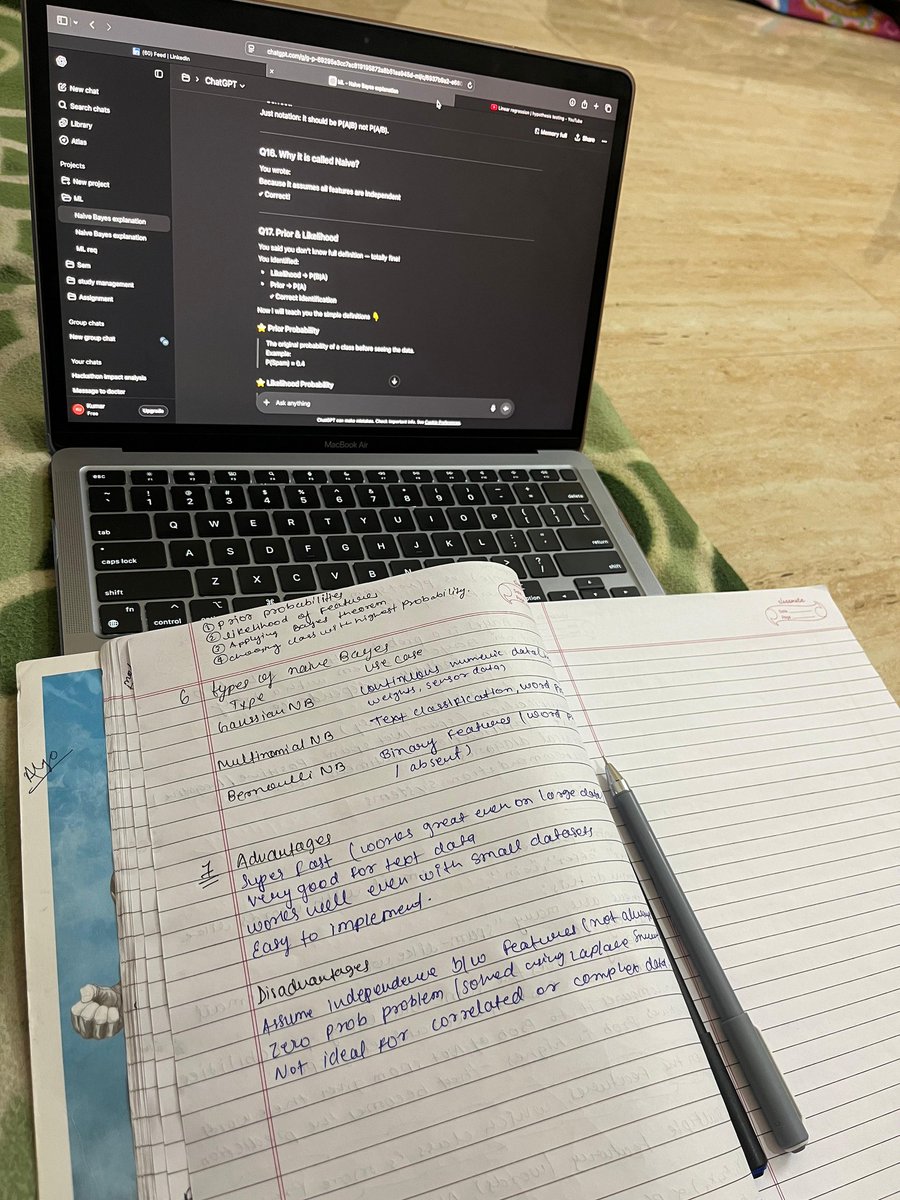 (60) Feed | LinkedIn
ML - Naive Bayes explanation
Linear regression | hypothesis testing - YouTube
ChatGPT
Memory full
Share
New chat
Search chats
Library
Atlas
Projects
New project
ML
Naive Bayes explanation
Naive Bayes explanation
ML req
Sem
study management
Assignment
Group chats
New group chat
Your chats
Hackathon impact analysis
Message to doctor
Kumar
Free
Upgrade
Just notation: it should be P(A|B) not P(A/B).
Q16. Why it is called Naive?
You wrote:
Because it assumes all features are independent
✔ Correct!
Q17. Prior & Likelihood
You said you don't know full definition — totally fine!
You identified:
Likelihood → P(B|A)
Prior → P(A)
✔ Correct identification
Now I will teach you the simple definitions 👇
⭐ Prior Probability
The original probability of a class before seeing the data.
Example:
P(Spam) = 0.4
⭐ Likelihood Probability
Ask anything
ChatGPT can make mistakes. Check important info. See Cookie Preferences.
MacBook Air
esc
delete
tab
Q W E R T Y U I O P
caps lock
A S D F G H J K L
return
shift
Z X C V B
shift
fn
control
option
① Prior probabilities
② likelihood of features
③ Applying Bayes theorem
④ choosing class with highest probability.
6 types of naive Bayes
Type use case
Gaussian NB continuous numeric data
weights, sensor data)
Multinomial NB Text classification, word
Bernoulli NB Binary features (word
/ absent)
7 Advantages
Super fast (works great even on large data
very good for text data
works well even with small datasets
Easy to implement.
Disadvantages
Assume independence b/w features (not always
Zero prob problem (solved using Laplace
Not ideal for correlated or complex data
Algo
classmate
Date
Page